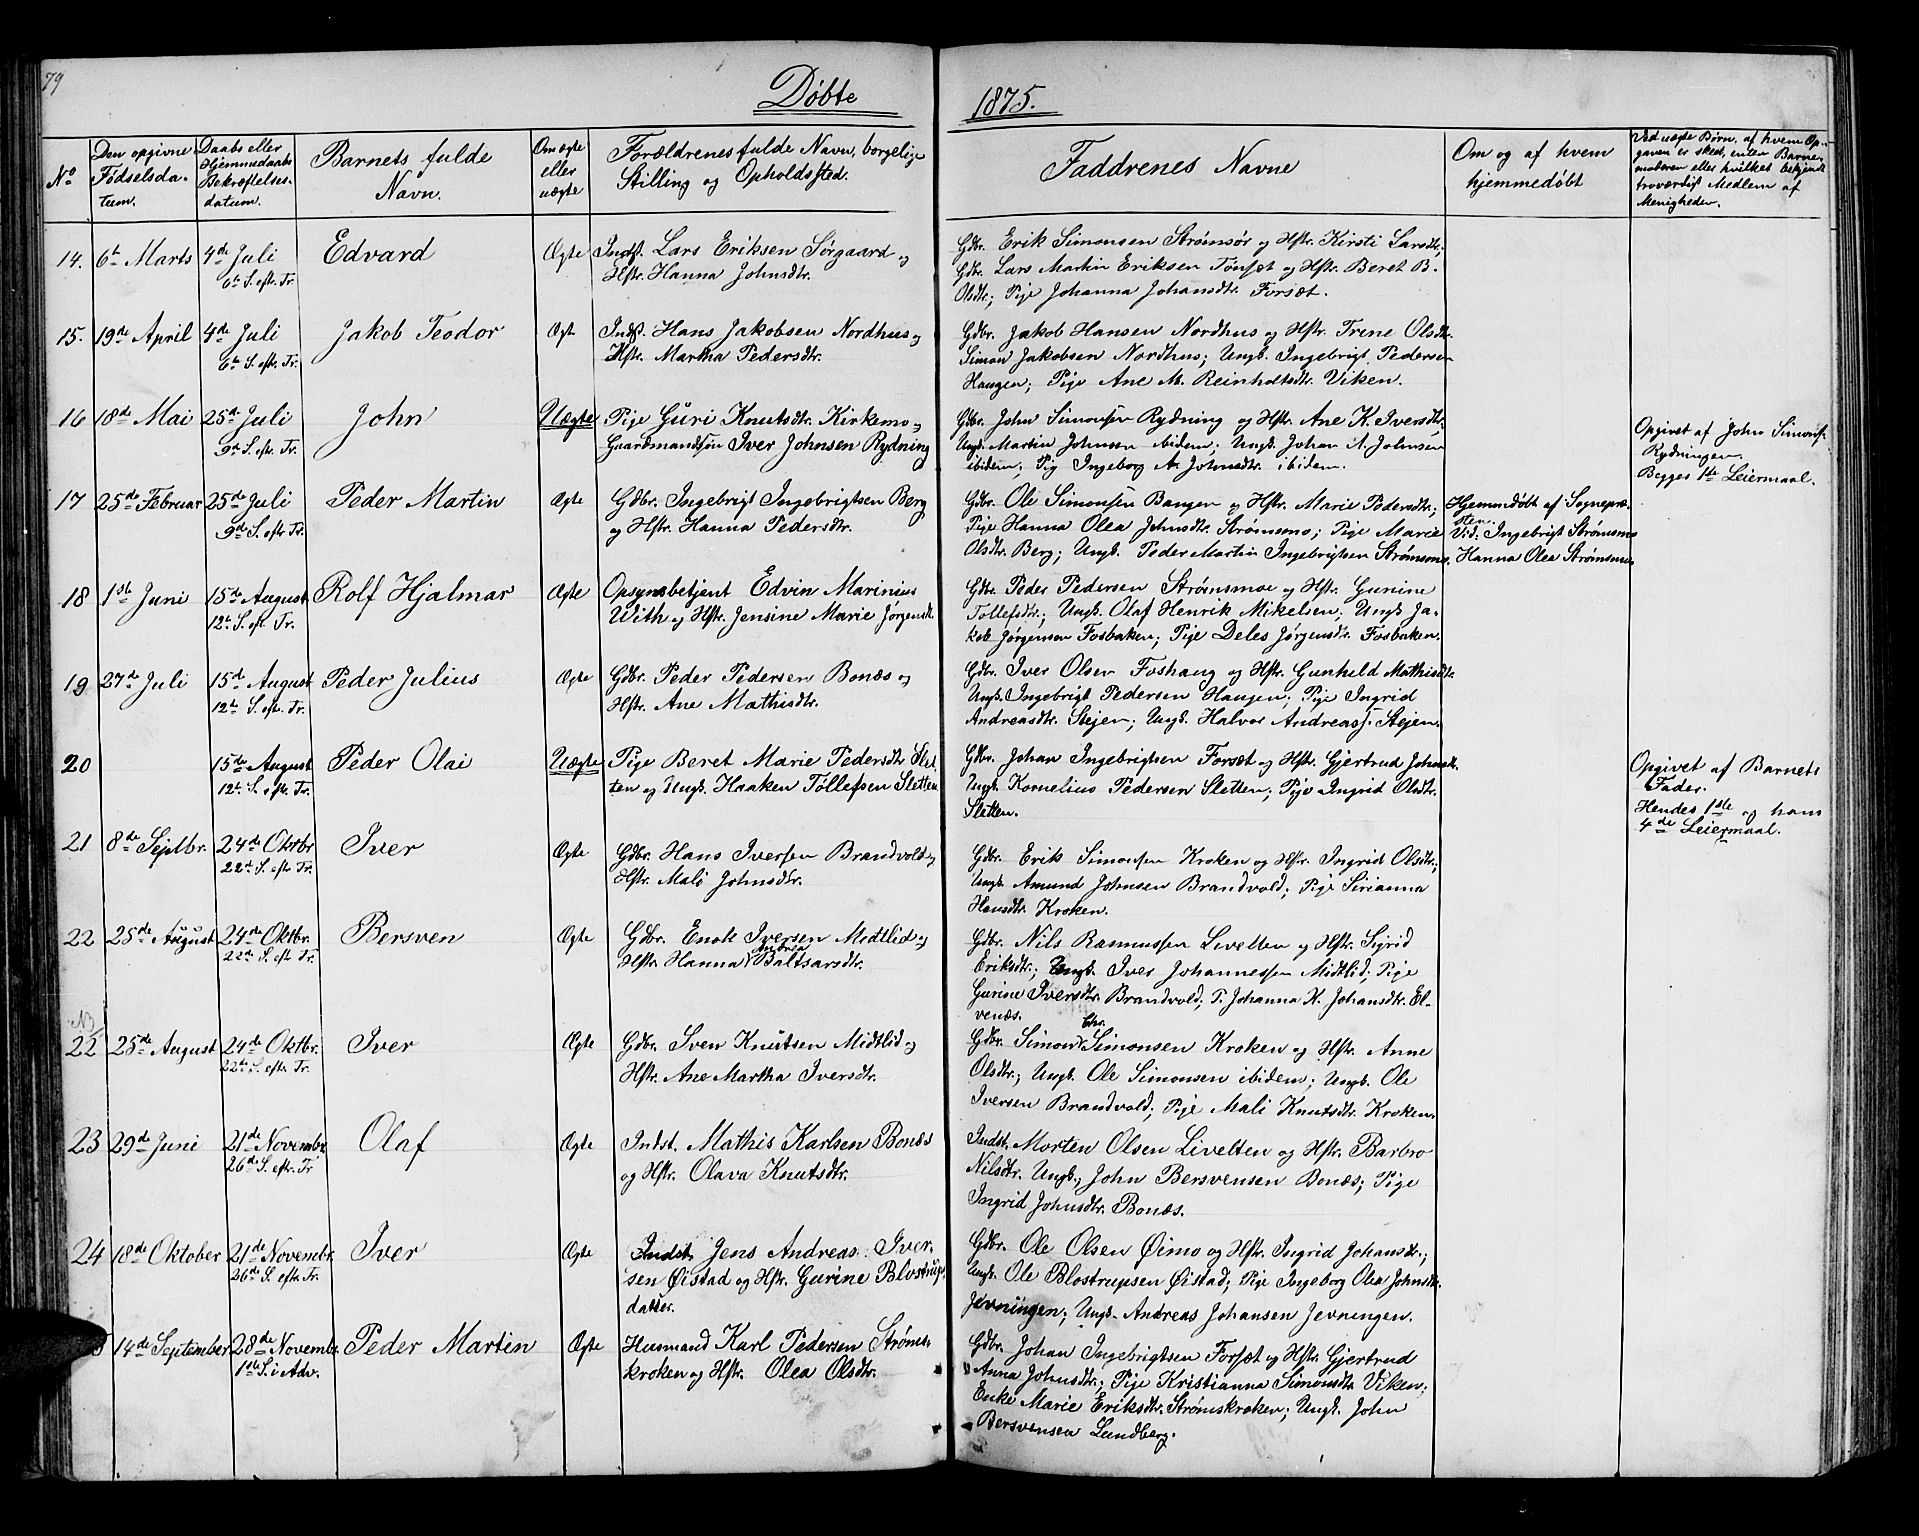 79
Döbte 1875.
No
Den opgivne Fødselsda-tum.
Daabs eller Hjemmedaabs Bekræftelses-datum.
Barnets fulde Navn.
Om ægte eller uægte
Forældrenes fulde Navn, borgelige Stilling og Opholdssted.
Faddrenes Navne
Om og af hvem hjemmedøbt
Ved uægte Børn, af hvem Op-gaven er skeet, enten Barne-moderen eller hvilket bekjendt troværdigt Medlem af Menigheden.
14. 6te Marts 4de Juli Edvard Ægte Indst. Lars Eriksen Sørgaard og
6te S. eftr. Tr. Hstr. Hanna Johnsdtr.
Gdbr. Erik Simonsen Strømsør og Hstr. Kirsti Larsdtr;
Gdbr. Lars Martin Eriksen Tønset og Hstr. Beret B.
Olsdtr; Pige Johanna Johansdtr. Forsæt.
15. 19de April 4de Juli Jakob Teodor Ægt Indst. Hans Jakobsen Nordhus og
6te S. eftr. Tr. Hstr. Martha Pedersdtr.
Gdbr. Jakob Hansen Nordhus og Hstr. Trene Olsdtr.
Simon Jakobsen Nordhus; Ungk. Ingebrigt Pedersen
Haugen; Pige Ane M. Reinholtsdtr. Viken.
16 18de Mai 25de Juli John Uægte Pige Guri Knutsdtr. Kirkemo og
9de S. eftr. Tr. Gaardmandssøn Iver Johnsen Rydning
Gdbr. John Simonsen Rydning og Hstr. Ane K. Iversdtr;
Ungk. Martin Johnsen ibidem; Ungk. Johan A. Johnsen
ibidem; Pig Ingeborg A. Johnsdtr. ibidem.
Opgivet af John Simons.
Rydningen.
Begges 1ste Leiermaal.
17 25de Februar 25de Juli Peder Martin Ægt Gdbr. Ingebrigt Ingebrigtsen Berg
9de S. eftr. Tr. og Hstr. Hanna Pedersdtr.
Gdbr. Ole Simonsen Bangen og Hstr. Marie Pedersdtr;
Pige Hanna Olea Johnsdtr. Strømsmo; Pige Marie
Olsdtr. Berg; Ungk. Peder Martin Ingebrigtsen Strømsmo.
Hjemmdøbt af Sognepræ-
sten.
Vid. Ingebrigt Strømsmo
Hanna Olea Strømsmo
18 1ste Juni 15de August Rolf Hjalmar Ægte Opsynsbetjent Edvin Marinius
12te S. eftr. Tr. With og Hstr. Jensine Marie Jørgensdt.
Gdbr. Peder Pedersen Strømsmoe og Hstr. Gunine
Tollefsdtr.; Ungk. Olaf Henrik Mikelsen; Ungk. Ja-
kob Jørgensen Fosbaken; Pige Deles Jørgensdtr. Fosbaken.
19 27de Juli 15de August Peder Julius Ægte Gdbr. Peder Pedersen Bonæs og
12te S. eftr. Tr. Hstr. Ane Mathisdtr.
Gdbr. Iver Olsen Foshaug og Hstr. Gunheld Mathisdtr.
Ungk. Ingebrigt Pedersen Haugen; Pige Ingrid
Andreasdtr. Stejen; Ungk. Halvor Andreass. Stejen.
20 15de August Peder Olai Uægte Pige Beret Marie Pedersdtr Slet
12te S. eftr. Tr. ten og Ungk. Haaken Tollefsen Sletten
Gdbr. Johan Ingebrigtsen Forsæt og Hstr. Gjertrud Johnsdt.
Ungk. Kornelius Pedersen Sletten; Pige Ingrid Olsdtr.
Sletten.
Opgivet af Barnets
Fader.
Hendes 1ste og hans
4de Leiermaal.
21 8de Septbr. 24de Oktbr Iver Ægte Gdbr. Hans Iversen Brandvold og
22de S. eftr. Tr. Hstr. Mali Johnsdtr.
Gdbr. Erik Simonsen Kroken og Hstr. Ingrid Olsdtr;
Ungk. Amund Johnsen Brandvold; Pige Sirianna
Hansdtr. Kroken.
22 25de August 24de Oktbr. Bersven Ægte Gdbr. Enok Iversen Midtlid og
22de S. eftr. Tr. Hstr. Hanna Andrea Baltsarsdtr.
Gdbr. Nils Rasmussen Livelten og Hstr. Sigrid
Eriksdtr.; Ungk. Iver Johannessen Midtlid; Pige
Gurine Iversdtr. Brandvold; P. Johanna K. Johansdtr. El-
venæs.
NB
22 25de August 24de Oktbr. Iver Ægte Gdbr. Sven Knutsen Midtlid og
22de S. eftr. Tr. Hstr. Ane Martha Iversdtr.
Gdbr. Simon Chr. Simonsen Kroken og Hstr. Anne
Olsdtr.; Ungk. Ole Simonsen ibidem; Ungk. Ole
Iversen Brandvold; Pige Mali Knutsdtr. Kroken.
23 29de Juni 21de Novembr Olaf Ægte Indst. Mathis Karlsen Bonæs
26de S. eftr. Tr og Hstr. Olava Knutsdtr.
Indst. Morten Olsen Livelten og Hstr. Barbro
Nilsdtr. Ungk. John Bersvensen Bonæs; Pige
Ingrid Johnsdtr. Bonæs.
24 18de Oktober 21de Novembr. Iver Ægte Indst. Jens Andreas Iver-
26de S. eftr. Tr. sen Øistad og Hstr. Gurine Blostrups
datter.
Gdbr. Ole Olsen Øimo og Hstr. Ingrid Johansdtr.;
Ungk. Ole Blostrupsen Øistad; Pige Ingeborg Olea Johnsdt.
Jevningen; Ungk. Andreas Johansen Jevningen.
14de September 28de Novembr. Peder Martin Ægte Husmand Karl Pedersen Strøms-
1ste S. i Adv. kroken og Hstr. Olea Olsdtr.
Gdbr. Johan Ingebrigtsen Forsæt og Hstr. Gjertrud
Anna Johnsdtr. Pige Kristianna Simonsdtr. Viken;
Enke Marie Eriksdtr. Strømskroken; Ungk. John
Bersvensen Lundberg.